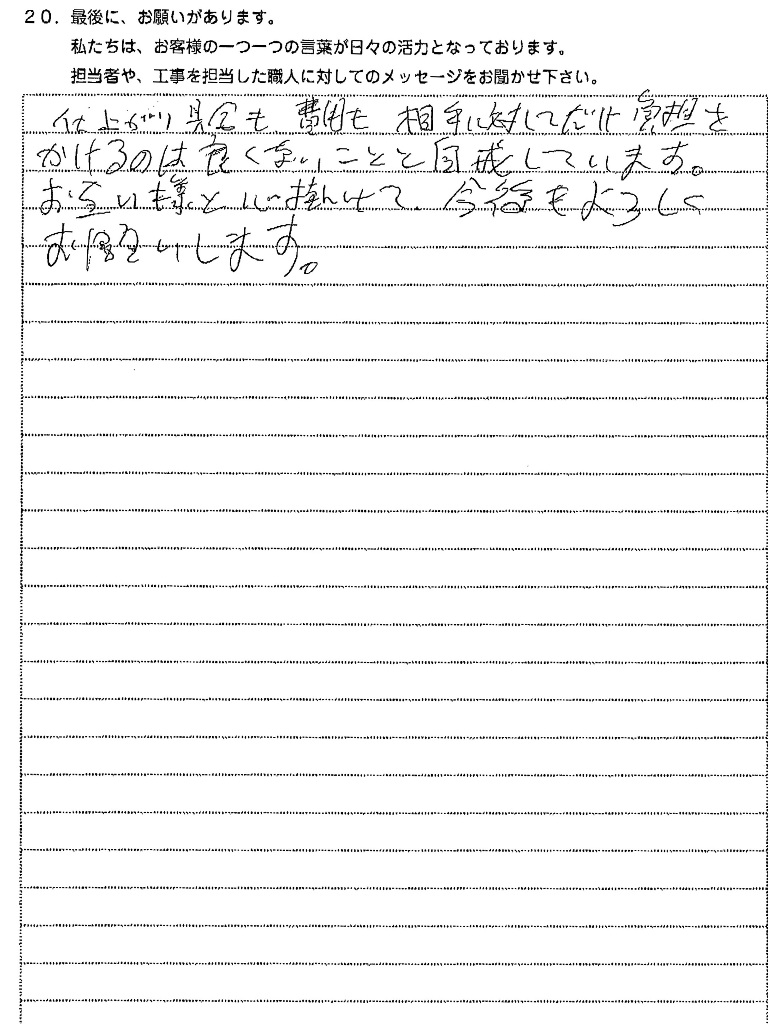 20. 最後に、お願いがあります。
私たちは、お客様の一つ一つの言葉が日々の活力となっております。
担当者や、工事を担当した職人に対してのメッセージをお聞かせ下さい。
仕上がり具合も 費用も 相手に対してだけ 負担を
かけるのは良くないことと自戒しています。
お互い様と心掛けて、今後もよろしく
お願いします。